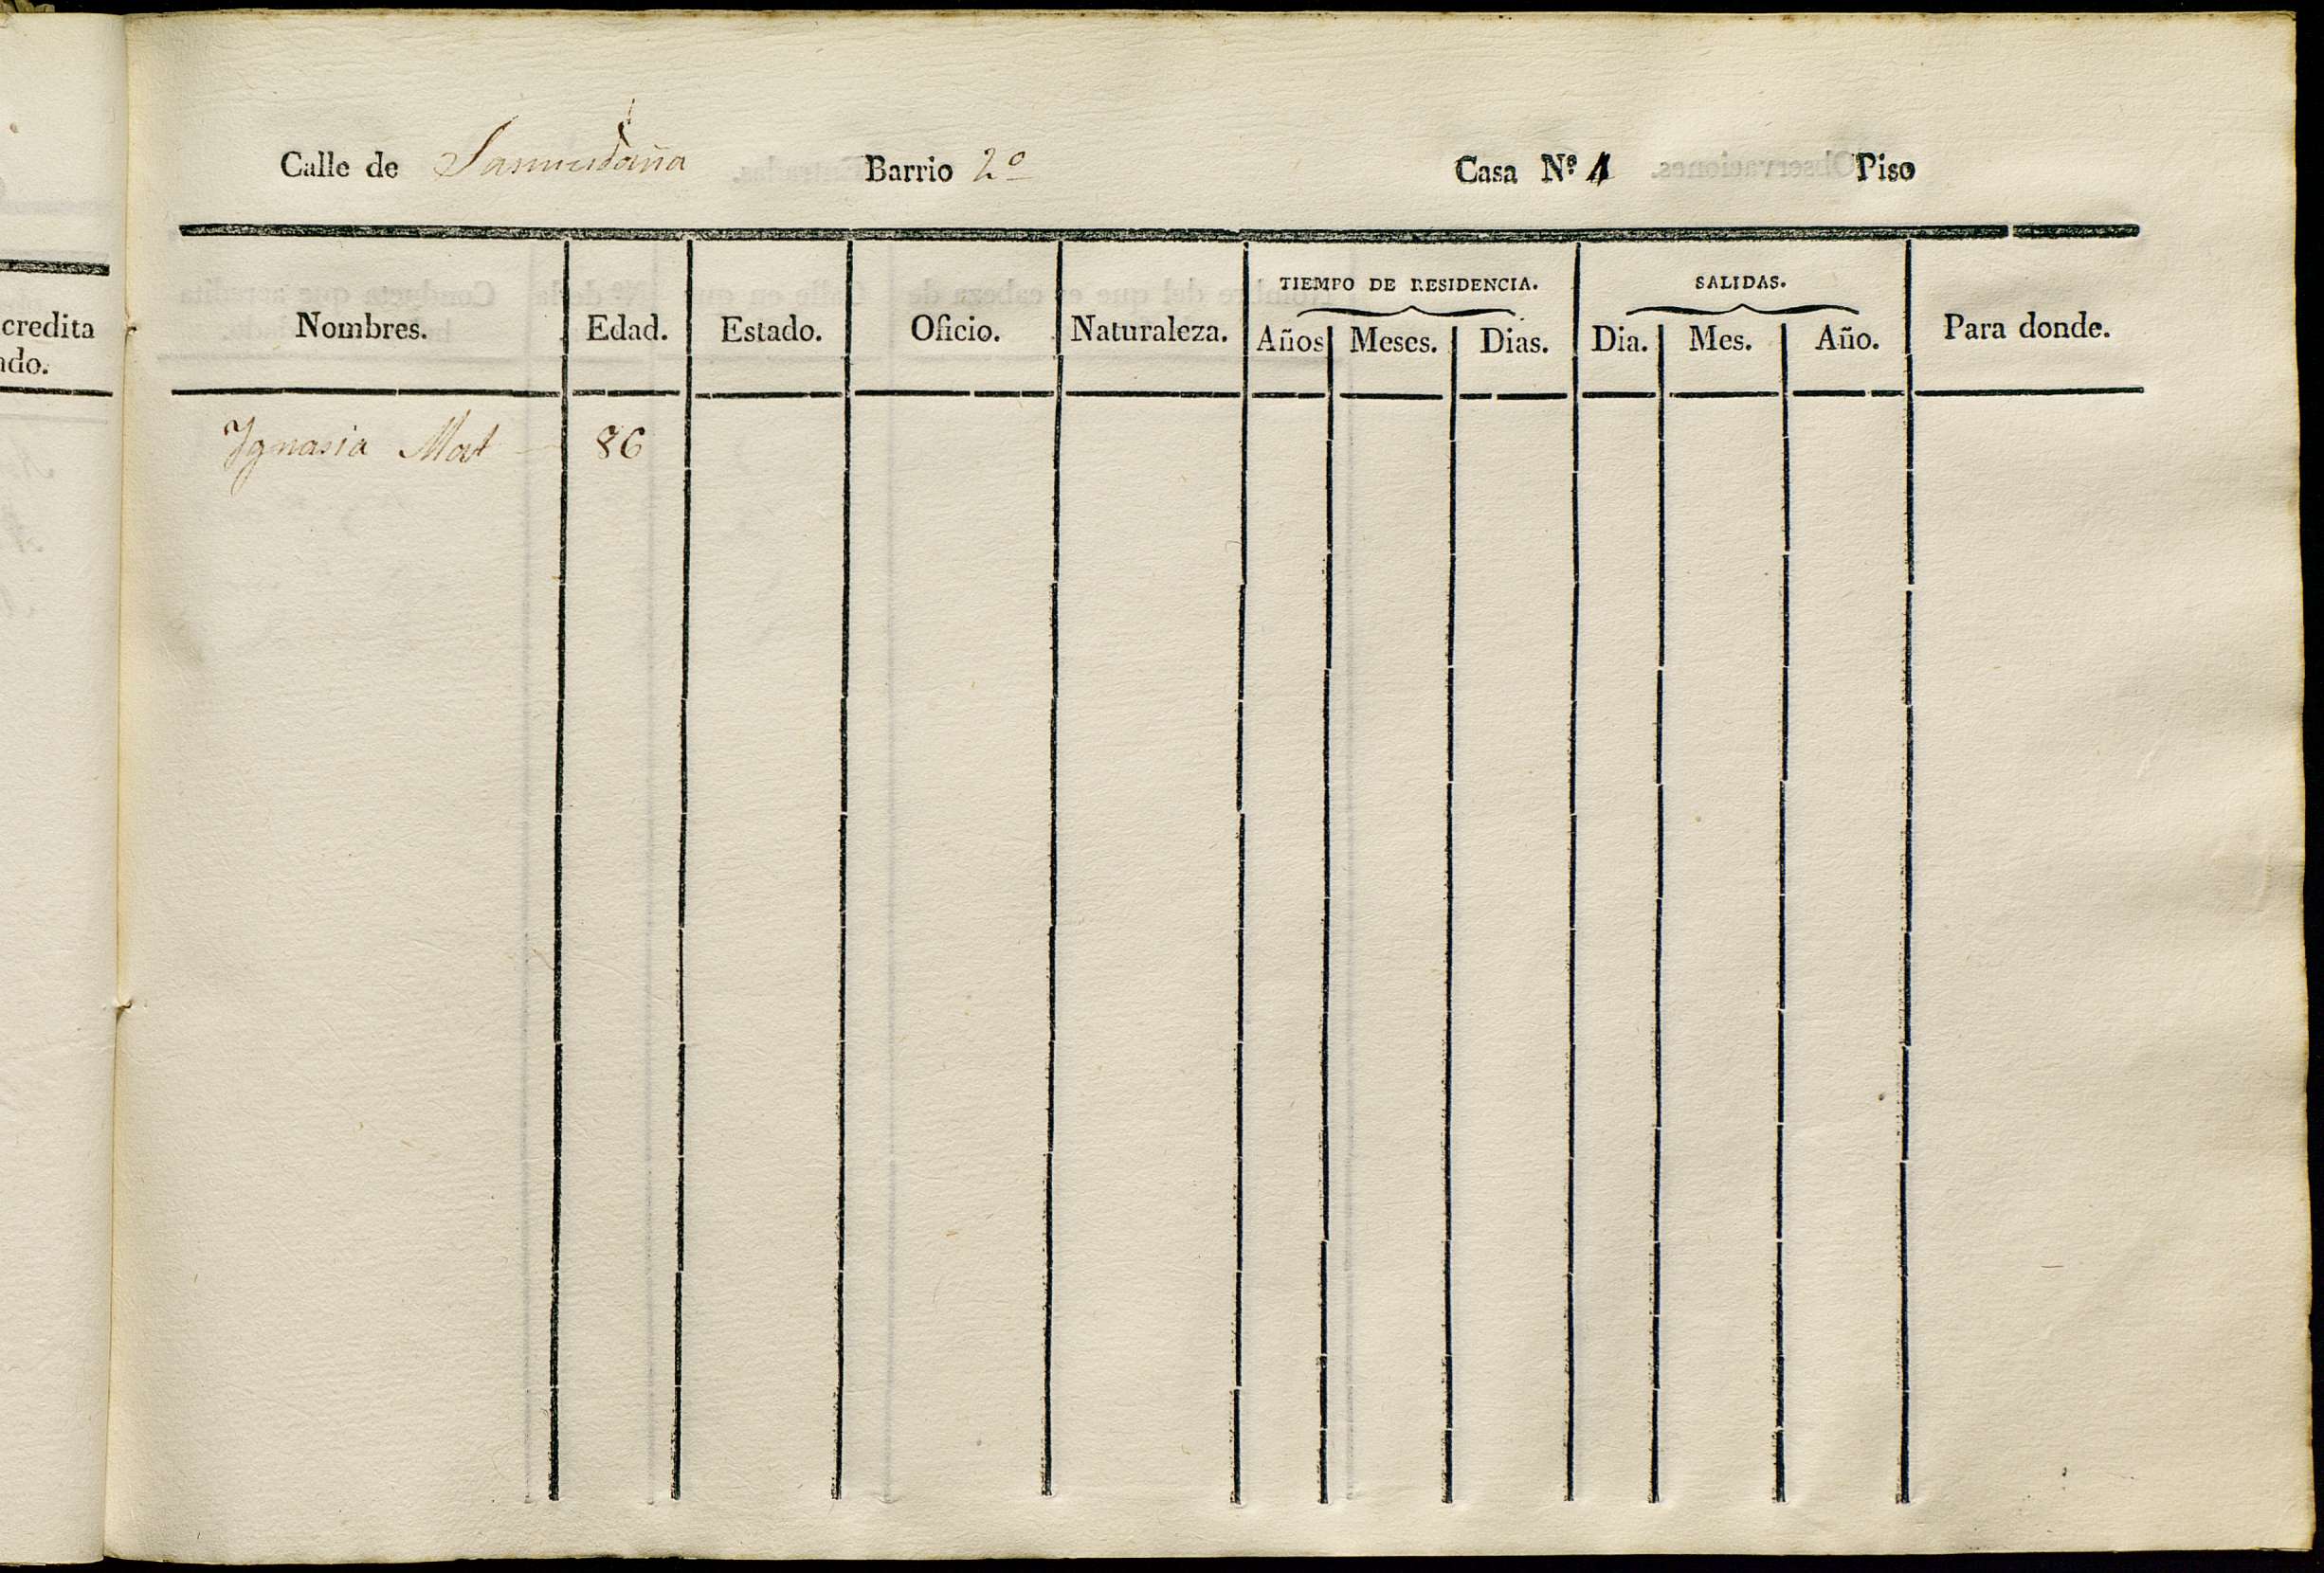 Calle de Barrio 2º Casa Nº 1 Piso
TIEMPO DE RESIDENCIA. SALIDAS.
Nombres. Edad. Estado. Oficio. Naturaleza. Años Meses. Dias. Dia. Mes. Año. Para donde.
Ygnasia Mat 86
credita
ado.